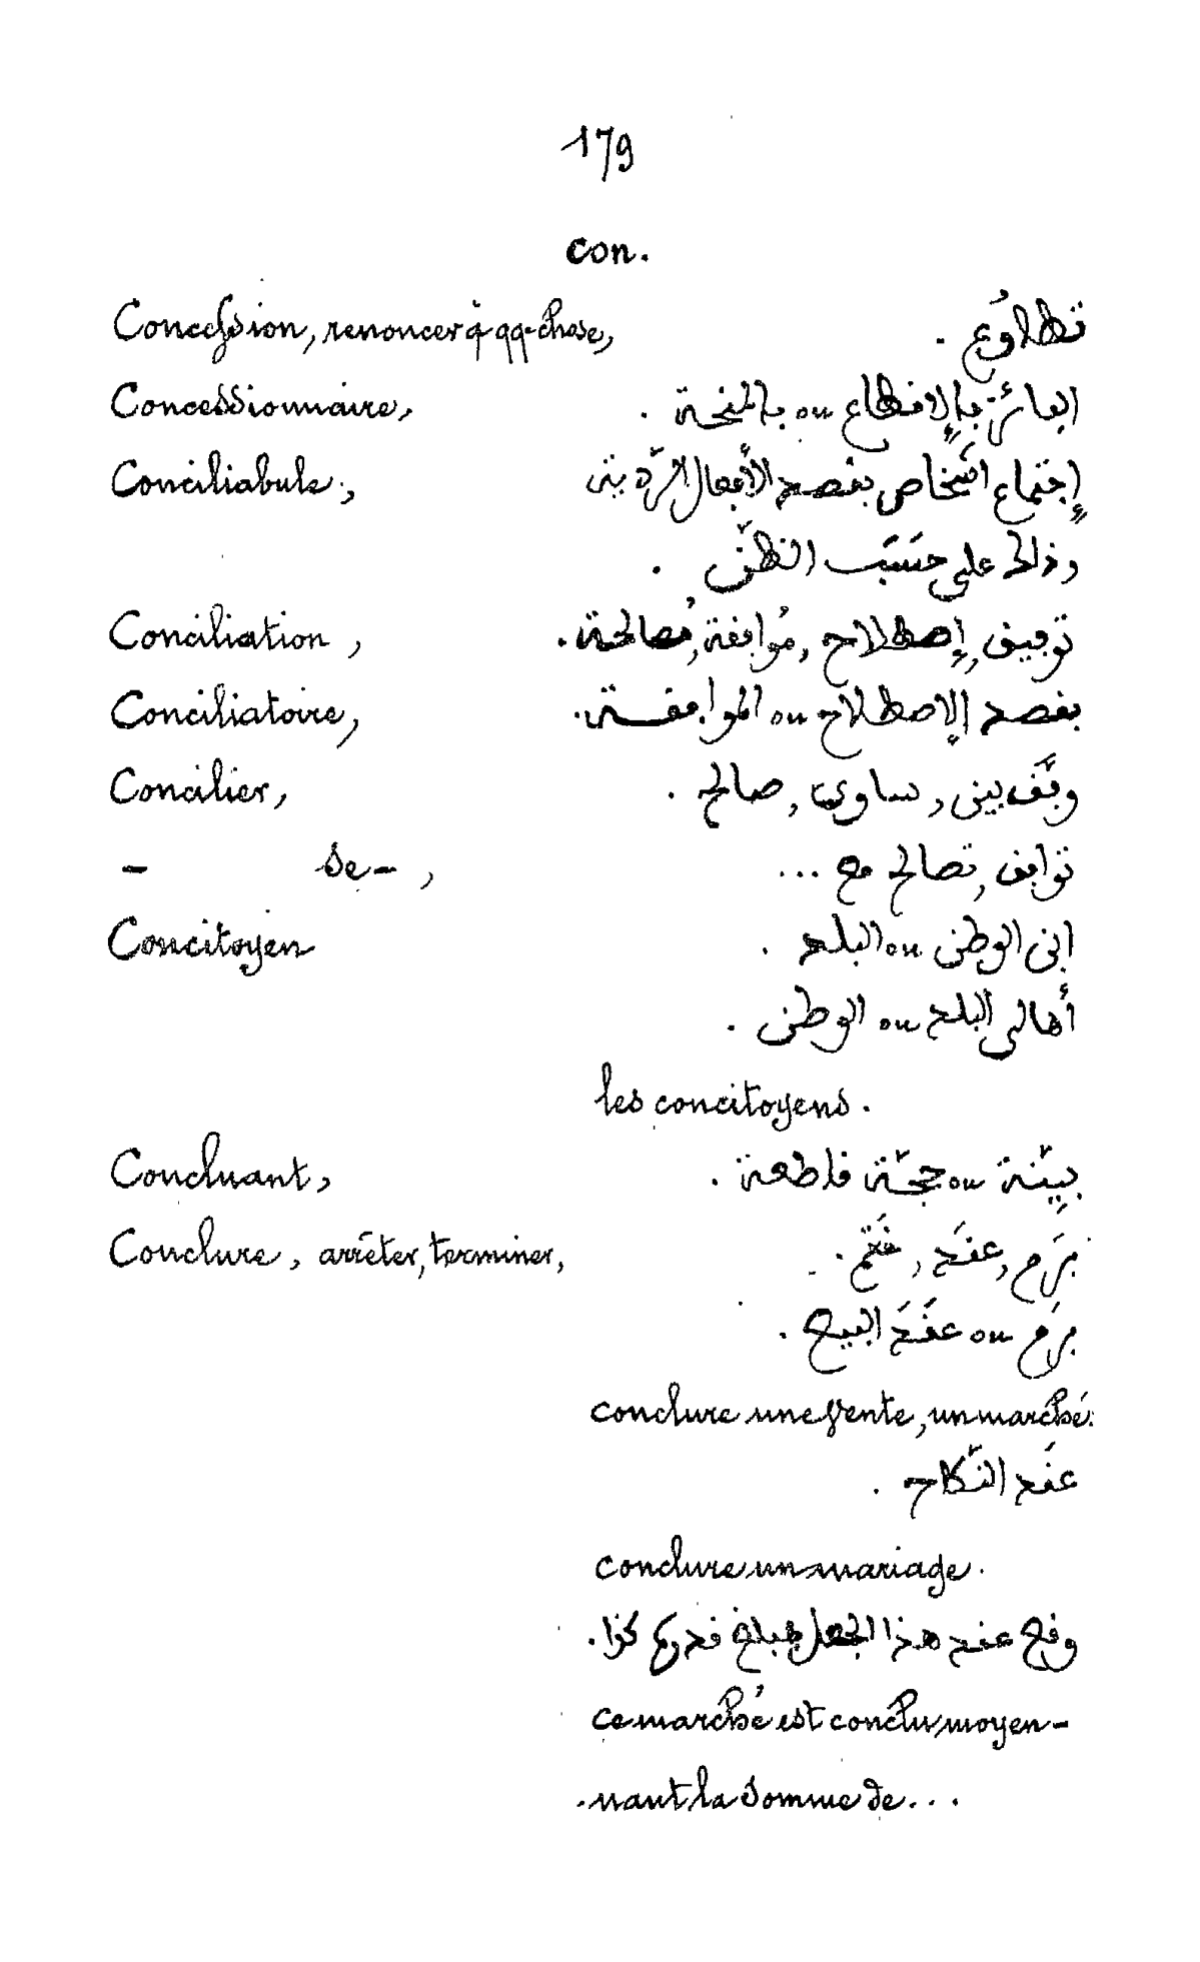 179
con.
Concession, renoncer à qq-chose, تطاوُع .
Concessionnaire, الفائز بالإقطاع ou بالمنحة .
Conciliabule, إجتماع اشخاص بقصد الأفعال الرّديّة
وذالك على حَسَب الظنّ .
Conciliation, توفيق, إصطلاح, مُوافقة, مُصالحة .
Conciliatoire, بقصد الإصطلاح ou الموافقة .
Concilier, وفَّق بين, ساوى, صالح .
- se -, توافق, تصالح مع ...
Concitoyen ابن الوطن ou البلد .
أهالى البلد ou الوطن .
les concitoyens .
Concluant, بيِّنة ou حجّة قاطعة .
Conclure, arrêter, terminer, برَم, عقَد, خَتَم .
برَم ou عقَدَ البيع .
conclure une vente, un marché.
عقَد النّكاح .
conclure un mariage .
وقع عقد هذا بمبلغ قدره كذا .
ce marché est conclu moyen-
nant la somme de ...